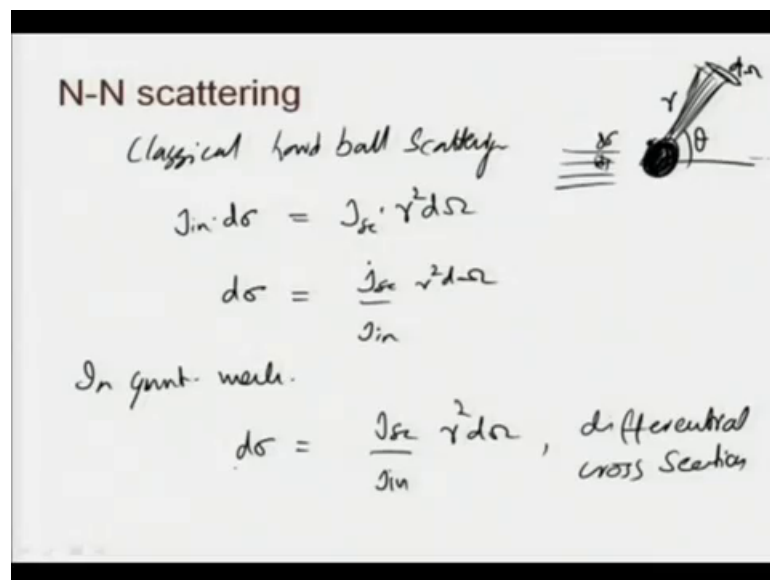 N-N scattering
Classical hard ball Scattering
J_in · dσ = J_sc · r² dΩ
dσ = J_sc / J_in r² dΩ
In quant. mech.
dσ = J_sc / J_in r² dΩ , differential cross section
r
dΩ
θ
dσ